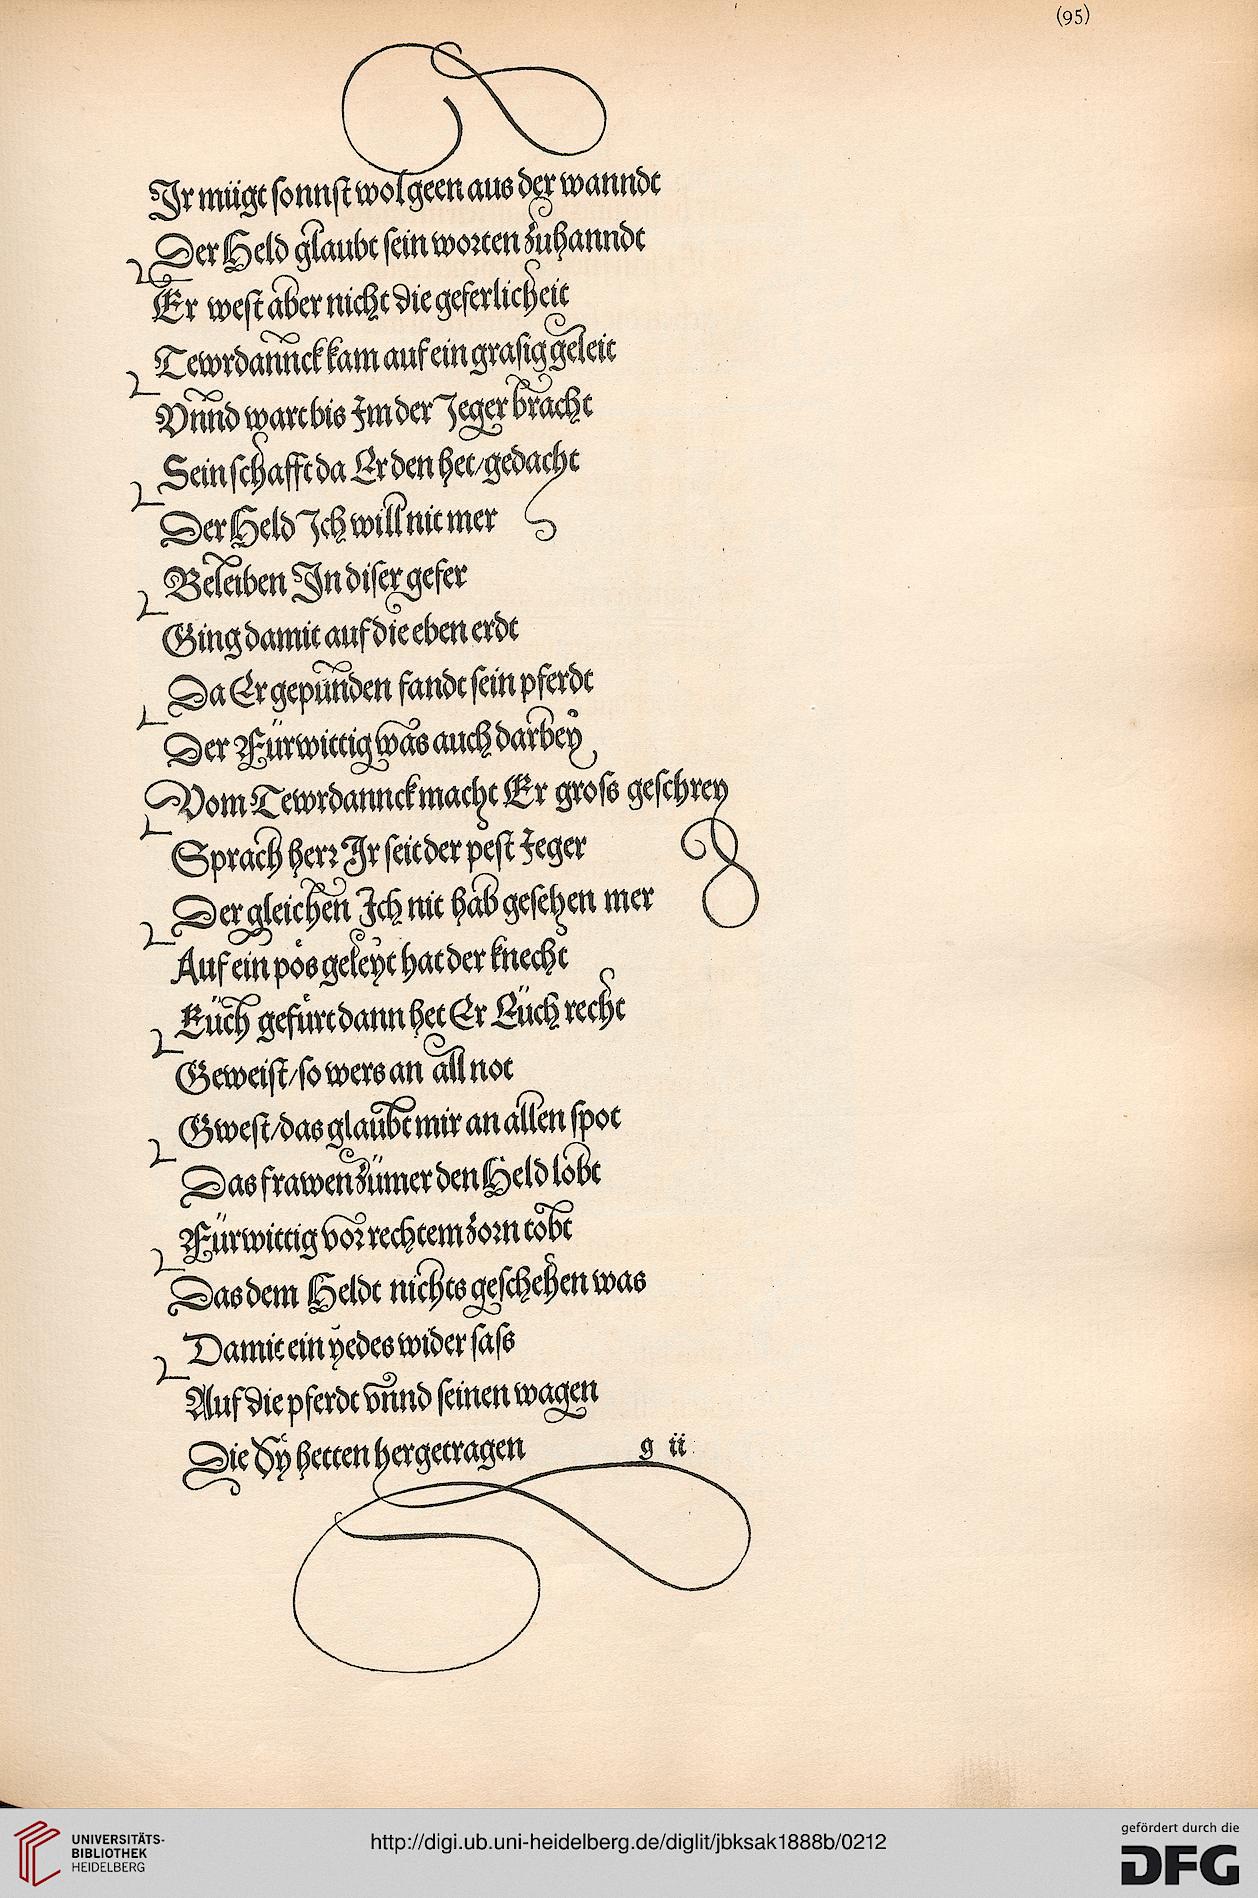 (95)
Ir mügt sonnst wol geen aus der wanndt
Der Held glaubt sein worten zuhanndt
Er west aber nicht die geferlicheit
Tewrdannck kam auf ein grasig geleit
Vnnd wart bis Im der Jeger bracht
Sein schafft da Er den het/gedacht
Der Held Ich will nit mer
Beleiben In diser gefer
Ging damit auf die eben erdt
Da Er gepunden fandt sein pferdt
Der Fürwittig was auch darbey
Vom Tewrdannck macht Er gross geschrey
Sprach herr Ir seit der pest Jeger
Der gleichen Ich nit hab gesehen mer
Auf ein pös geleyt hat der knecht
Eüch gefürt dann het Er Eüch recht
Geweist/so wers an all not
Gwest/das glaubt mir an allen spot
Das frawenzümer den Held lobt
Fürwittig vor rechtem zorn tobt
Das dem Heldt nichts geschehen was
Damit ein yedes wider sass
Auf die pferdt vnnd seinen wagen
Die Sy hetten hergetragen
g ii
UNIVERSITÄTS-
BIBLIOTHEK
HEIDELBERG
http://digi.ub.uni-heidelberg.de/diglit/jbksak1888b/0212
gefördert durch die
DFG